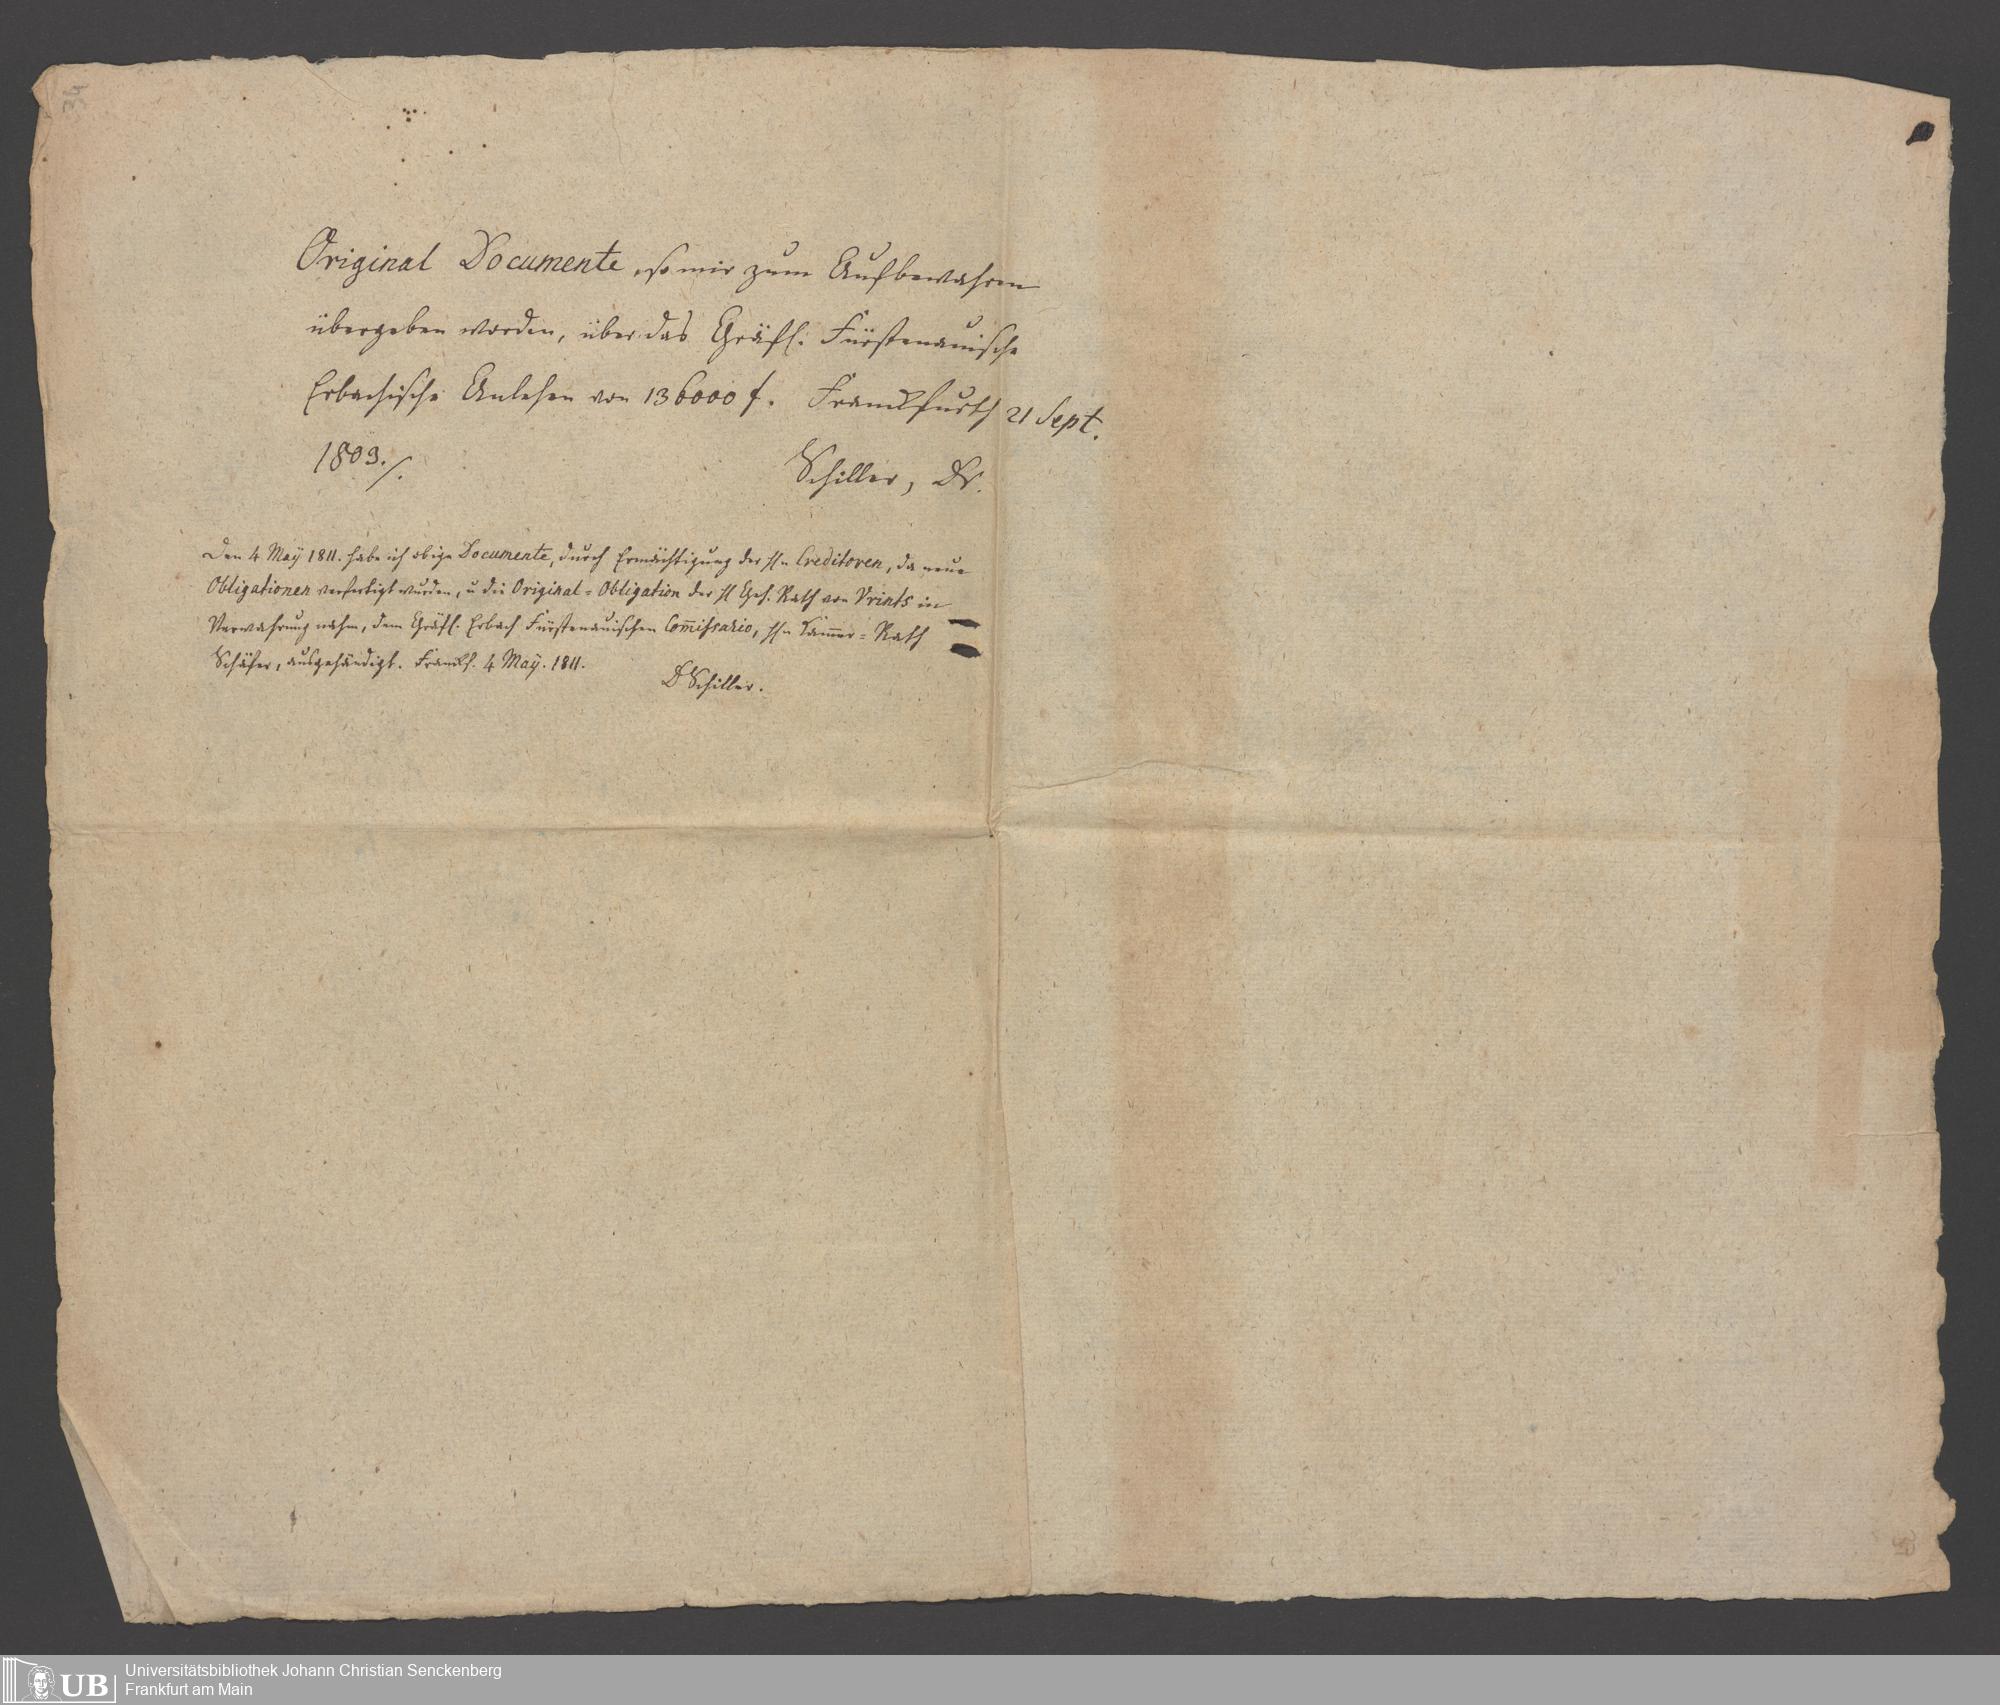 34
Original Documente, so mir zum Aufbewahren
übergeben worden, über das Gräfl. Fürstenauische
Erbachische Anlehen von 136000 f. Franckfurth 21 Sept.
1803./.
Schiller, Dr.
Den 4 Maÿ 1811. habe ich obige Documente, durch Ermächtigung der Hn Creditoren, da neue
Obligationen verfertigt wurden, u die Original=Obligation der H Geh. Rath von Vrints in
Verwahrung nahm, dem Gräfl. Erbach Fürstenauischen Com̄issario, Hn Cam̄er=Rath
Schäfer, ausgehändigt. Franckf. 4 Maÿ. 1811.
D Schiller.
35
UB
Universitätsbibliothek Johann Christian Senckenberg
Frankfurt am Main